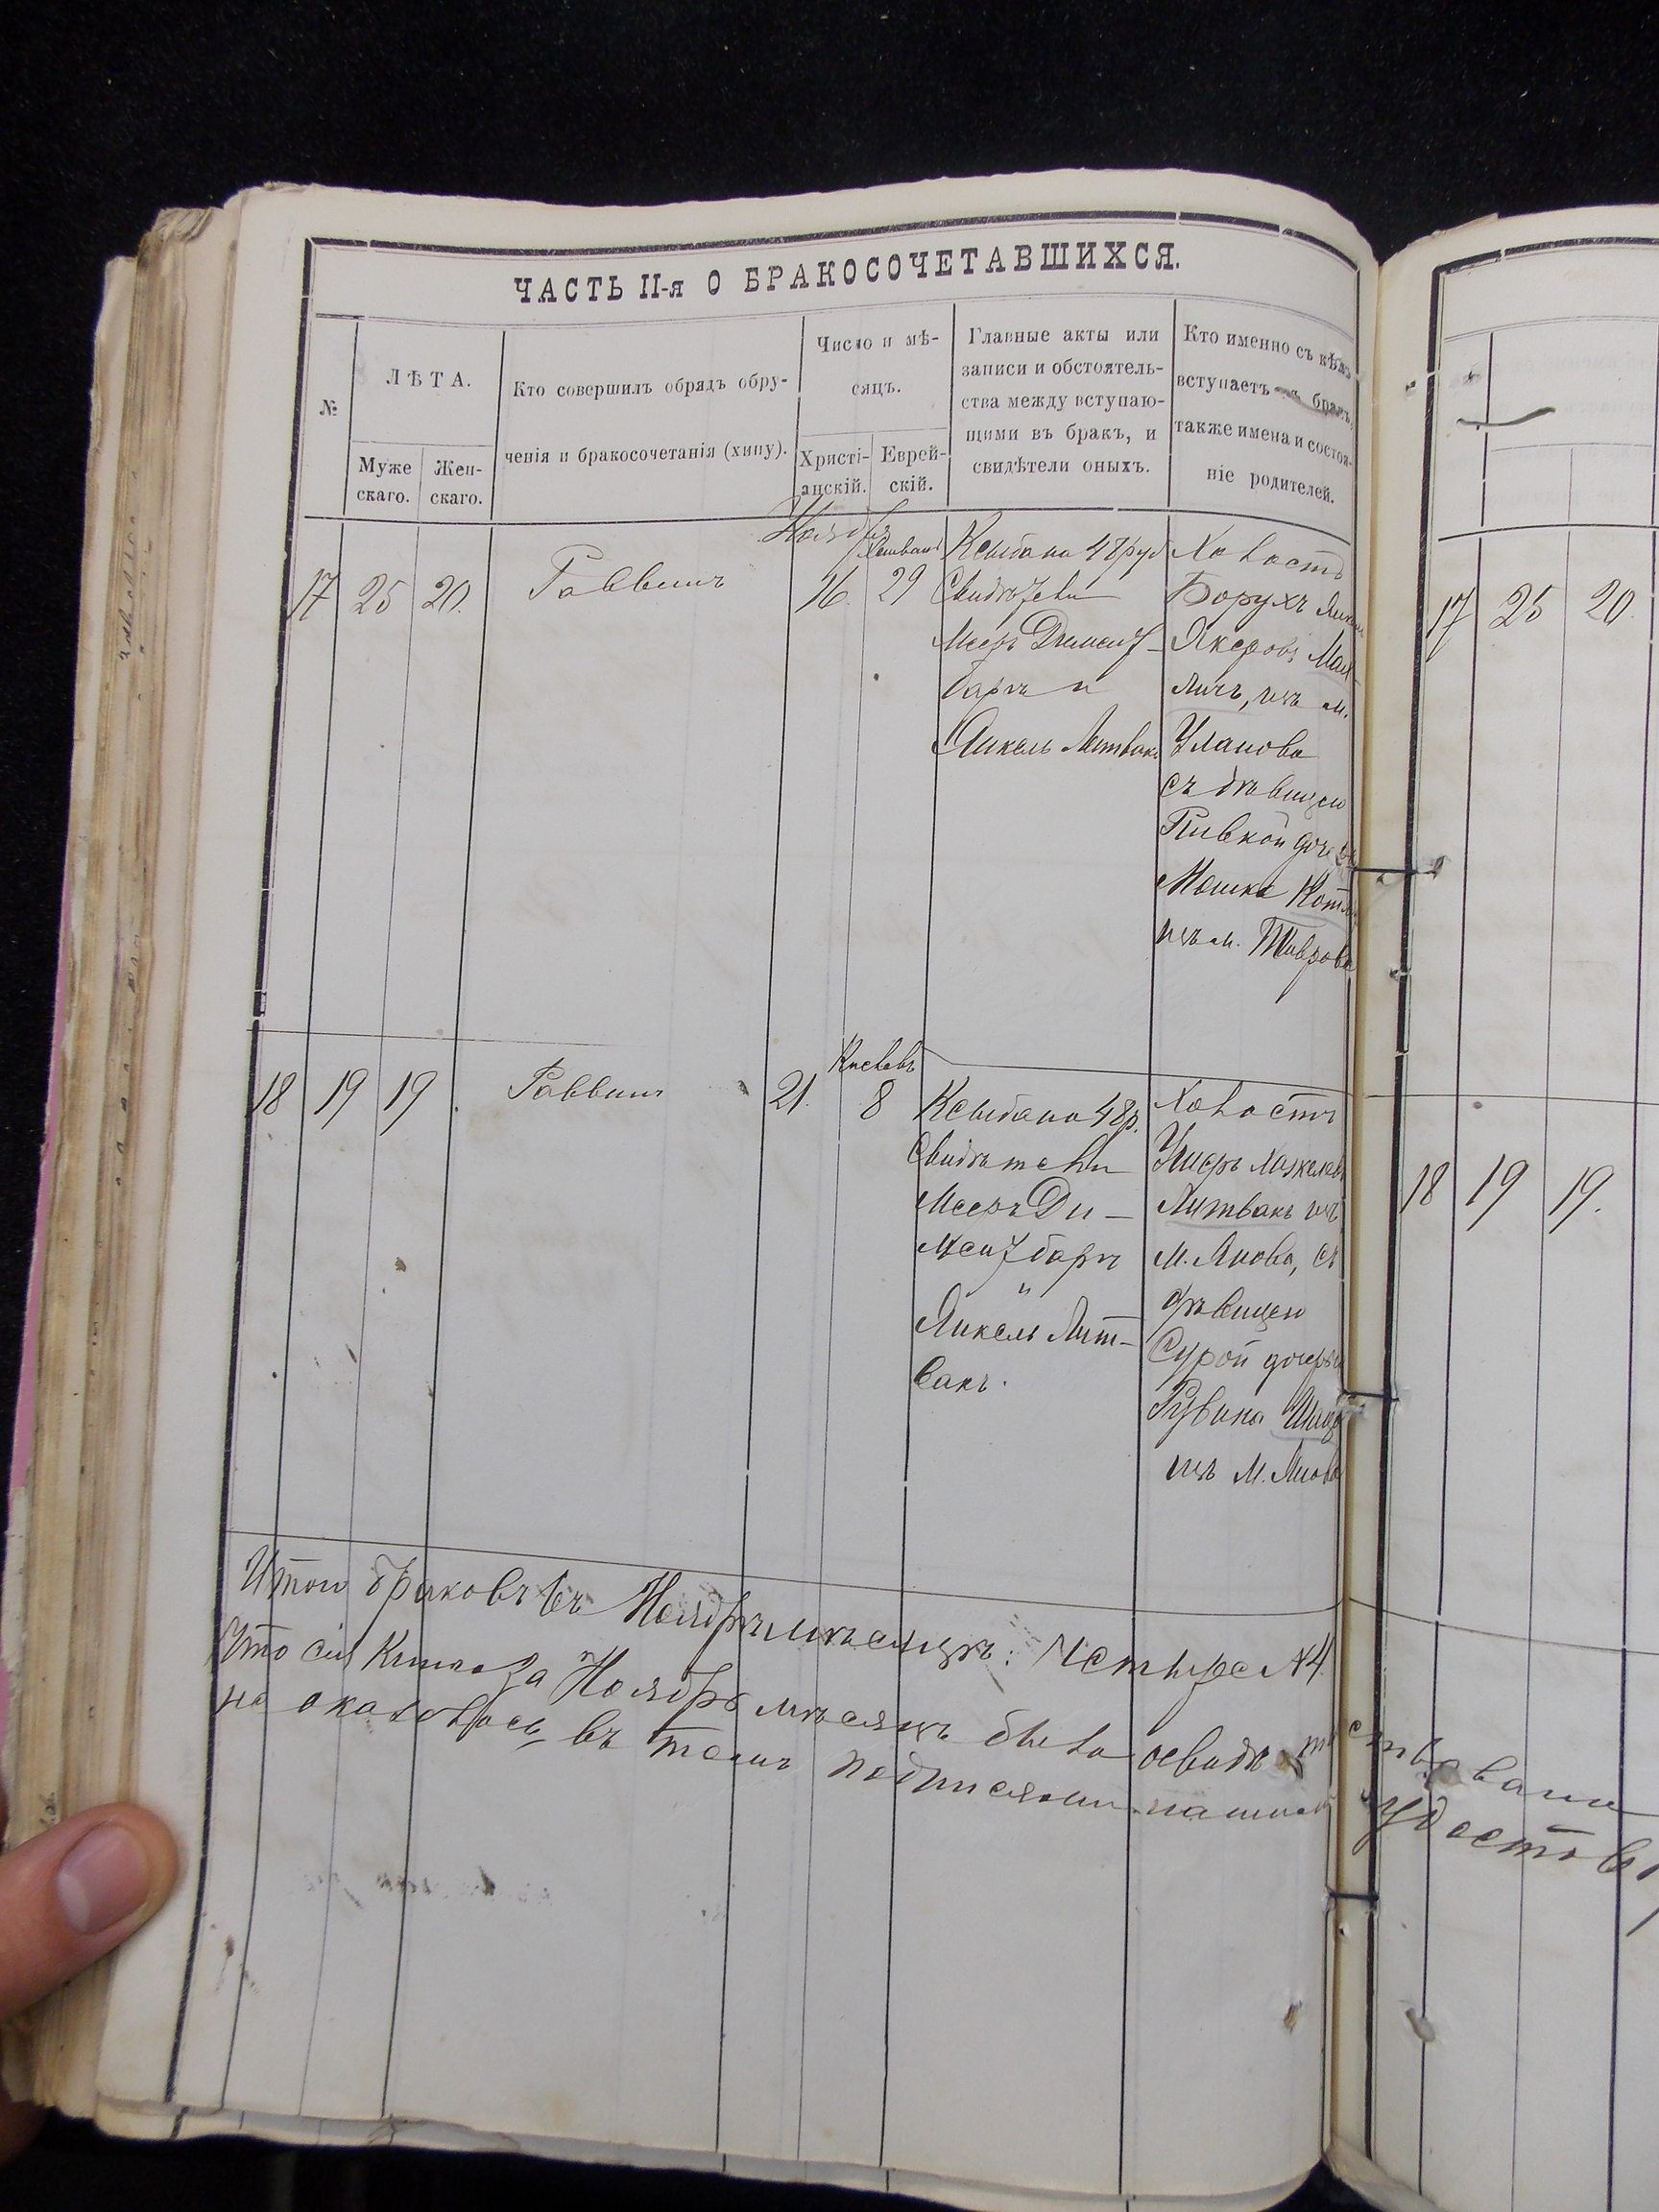 ЧАСТЬ II-я О БРАКОСОЧЕТАВШИХСЯ.
№
ЛѢТА.
Муже
скаго.
Жен-
скаго.
Кто совершилъ обрядъ обру-
ченія и бракосочетанія (хипу).
Число и мѣ-
сяцъ.
Христі-
анскій.
Еврей-
скій.
Главные акты или
записи и обстоятель-
ства между вступаю-
щими въ бракъ, и
свидѣтели оныхъ.
Кто именно съ кѣмъ
вступаетъ бракъ,
также имена и состоя-
ніе родителей.
17
25
20.
Раввинъ
Ноябрь
16.
29
48 руб
Свидѣтели
Мееръ Димент-
баргъ и
Янкель Литвакъ
Холостъ
Борухъ
изъ м.
Уланова
съ дѣвицею
Ривкой
Мошка
изъ м.
18
19
19.
Раввинъ
21.
Кислевъ
8
48 р.
Свидѣтели
Мееръ Ди-
ментбаргъ
и
Янкель Лит-
вакъ.
Холостъ
Литвакъ изъ
м. Янова, съ
дѣвицею
Сурой дочерью
Рувина
изъ м. Янова
Итого браковъ въ Ноябрѣ мѣсяцѣ: Четыре №4
Что сія Книга за Ноябрь мѣсяцъ была освидѣтельствована
и оказалось въ томъ подписями нашими удостовѣ
17
25
20
18
19
19.